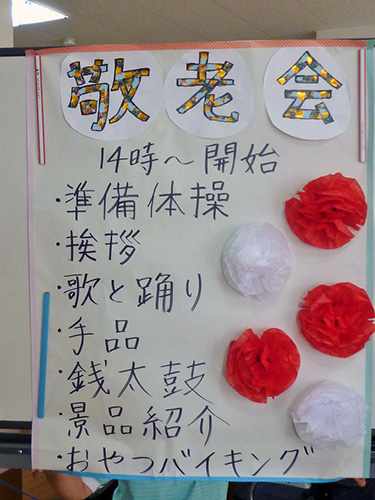 敬老会
14時～開始
・準備体操
・挨拶
・歌と踊り
・手品
・銭太鼓
・景品紹介
・おやつバイキング